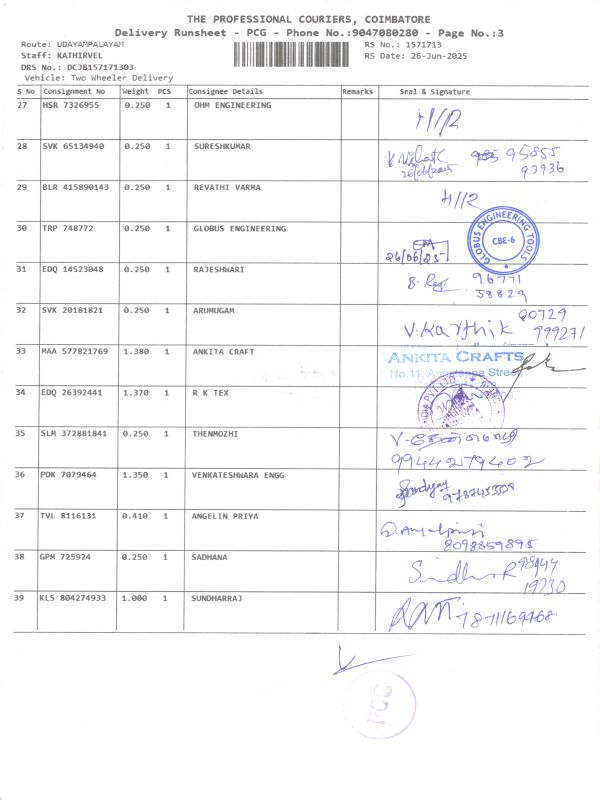 THE PROFESSIONAL COURIERS, COIMBATORE
Delivery Runsheet - PCG - Phone No.:9047080280 - Page No.:3
Route: UDAYAMPALAYAM
RS No.: 1571713
Staff: KATHIRVEL
RS Date: 26-Jun-2025
DRS No.: DCJB157171303
Vehicle: Two Wheeler Delivery
S No Consignment No Weight PCS Consignee Details Remarks Seal & Signature
27 HSR 7326955 0.250 1 OHM ENGINEERING
H/R
28 SVK 65134940 0.250 1 SURESHKUMAR
95855
26/06/2025 93936
29 BLR 415890143 0.250 1 REVATHI VARMA
H/R
30 TRP 748772 0.250 1 GLOBUS ENGINEERING
GLOBUS ENGINEERING TOOLS
CBE-6
26/06/25
31 EDQ 14523048 0.250 1 RAJESHWARI
96771
58829
32 SVK 20181821 0.250 1 ARUMUGAM
V. Karthik 999271
33 MAA 577821769 1.380 1 ANKITA CRAFT
ANKITA CRAFTS
No.11, Street,
34 EDQ 26392441 1.370 1 R K TEX
INDIA PVT LTD
35 SLM 372881841 0.250 1 THENMOZHI
9944279402
36 PDK 7079464 1.350 1 VENKATESHWARA ENGG
37 TVL 8116131 0.410 1 ANGELIN PRIYA
8098859895
38 GPM 725924 0.250 1 SADHANA
Sindhu R
39 KLS 804274933 1.000 1 SUNDHARRAJ
7871169768
PCG